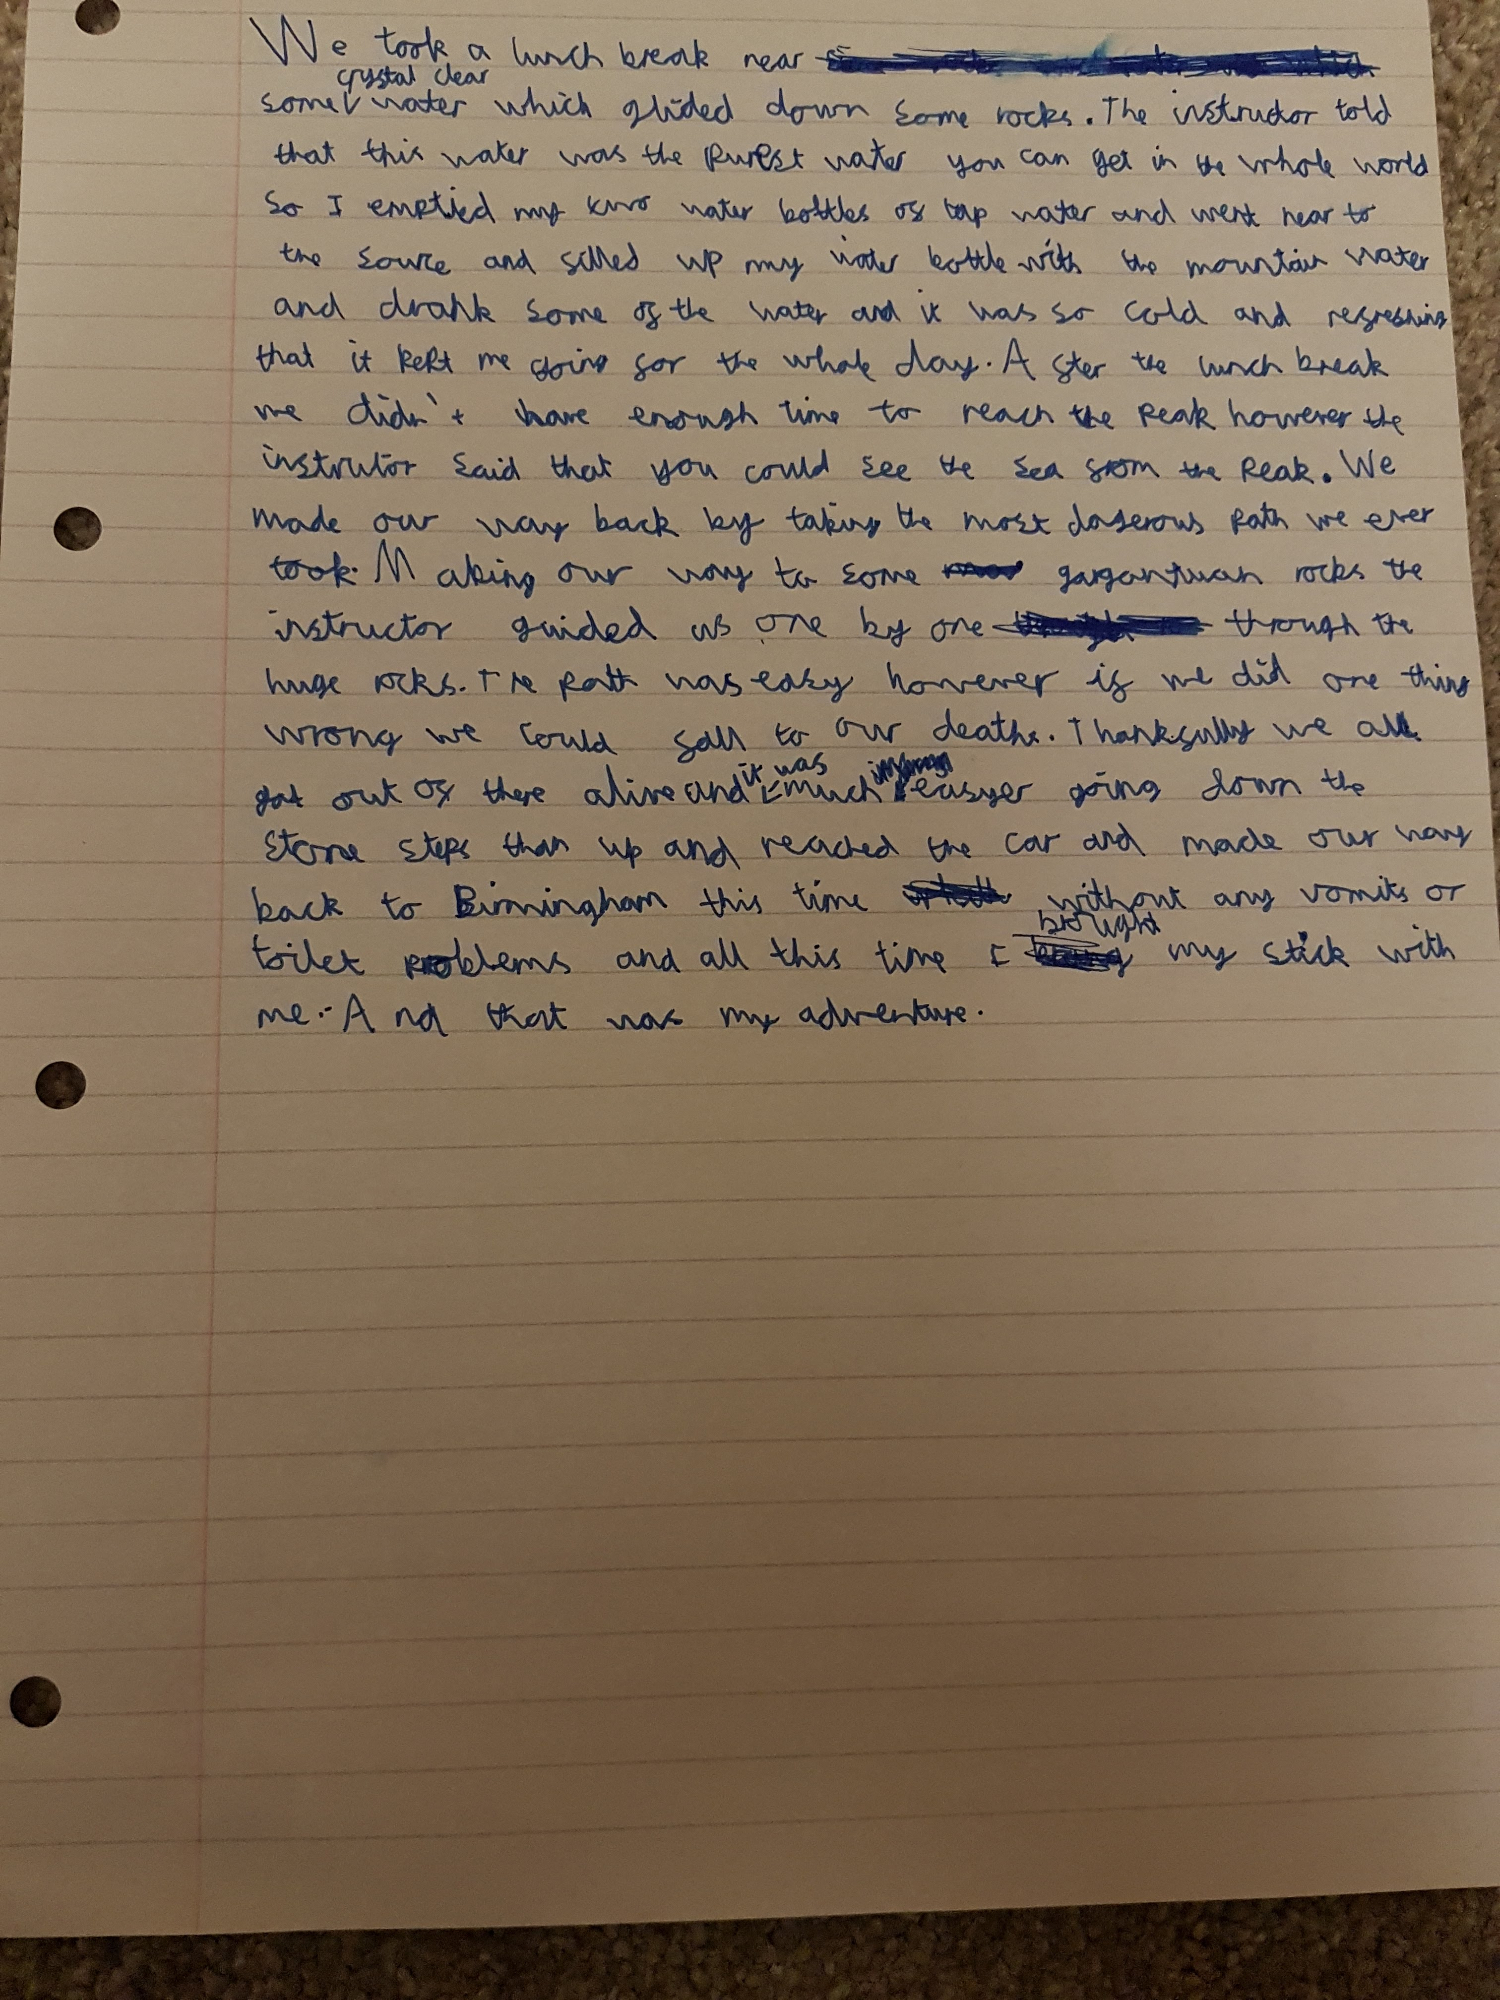 We took a lunch break near
some crystal clear water which glided down some rocks. The instructor told
that this water was the purest water you can get in the whole world
So I emptied my two water bottles of tap water and went near to
the source and filled up my water bottle with the mountain water
and drank some of the water and it was so cold and refreshing
that it kept me going for the whole day. After the lunch break
we didn't have enough time to reach the peak however the
instrutor said that you could see the sea from the peak. We
made our way back by taking the most dagerous path we ever
took. Making our way to some gargantuan rocks the
instructor guided us one by one through the
huge rocks. The path was easy however if we did one thing
wrong we could fall to our deaths. Thankfully we all
got out of there alive and it was much easyer going down the
stone steps than up and reached the car and made our way
back to Birmingham this time without any vomits or
toilet problems and all this time I brought my stick with
me. And that was my adventure.